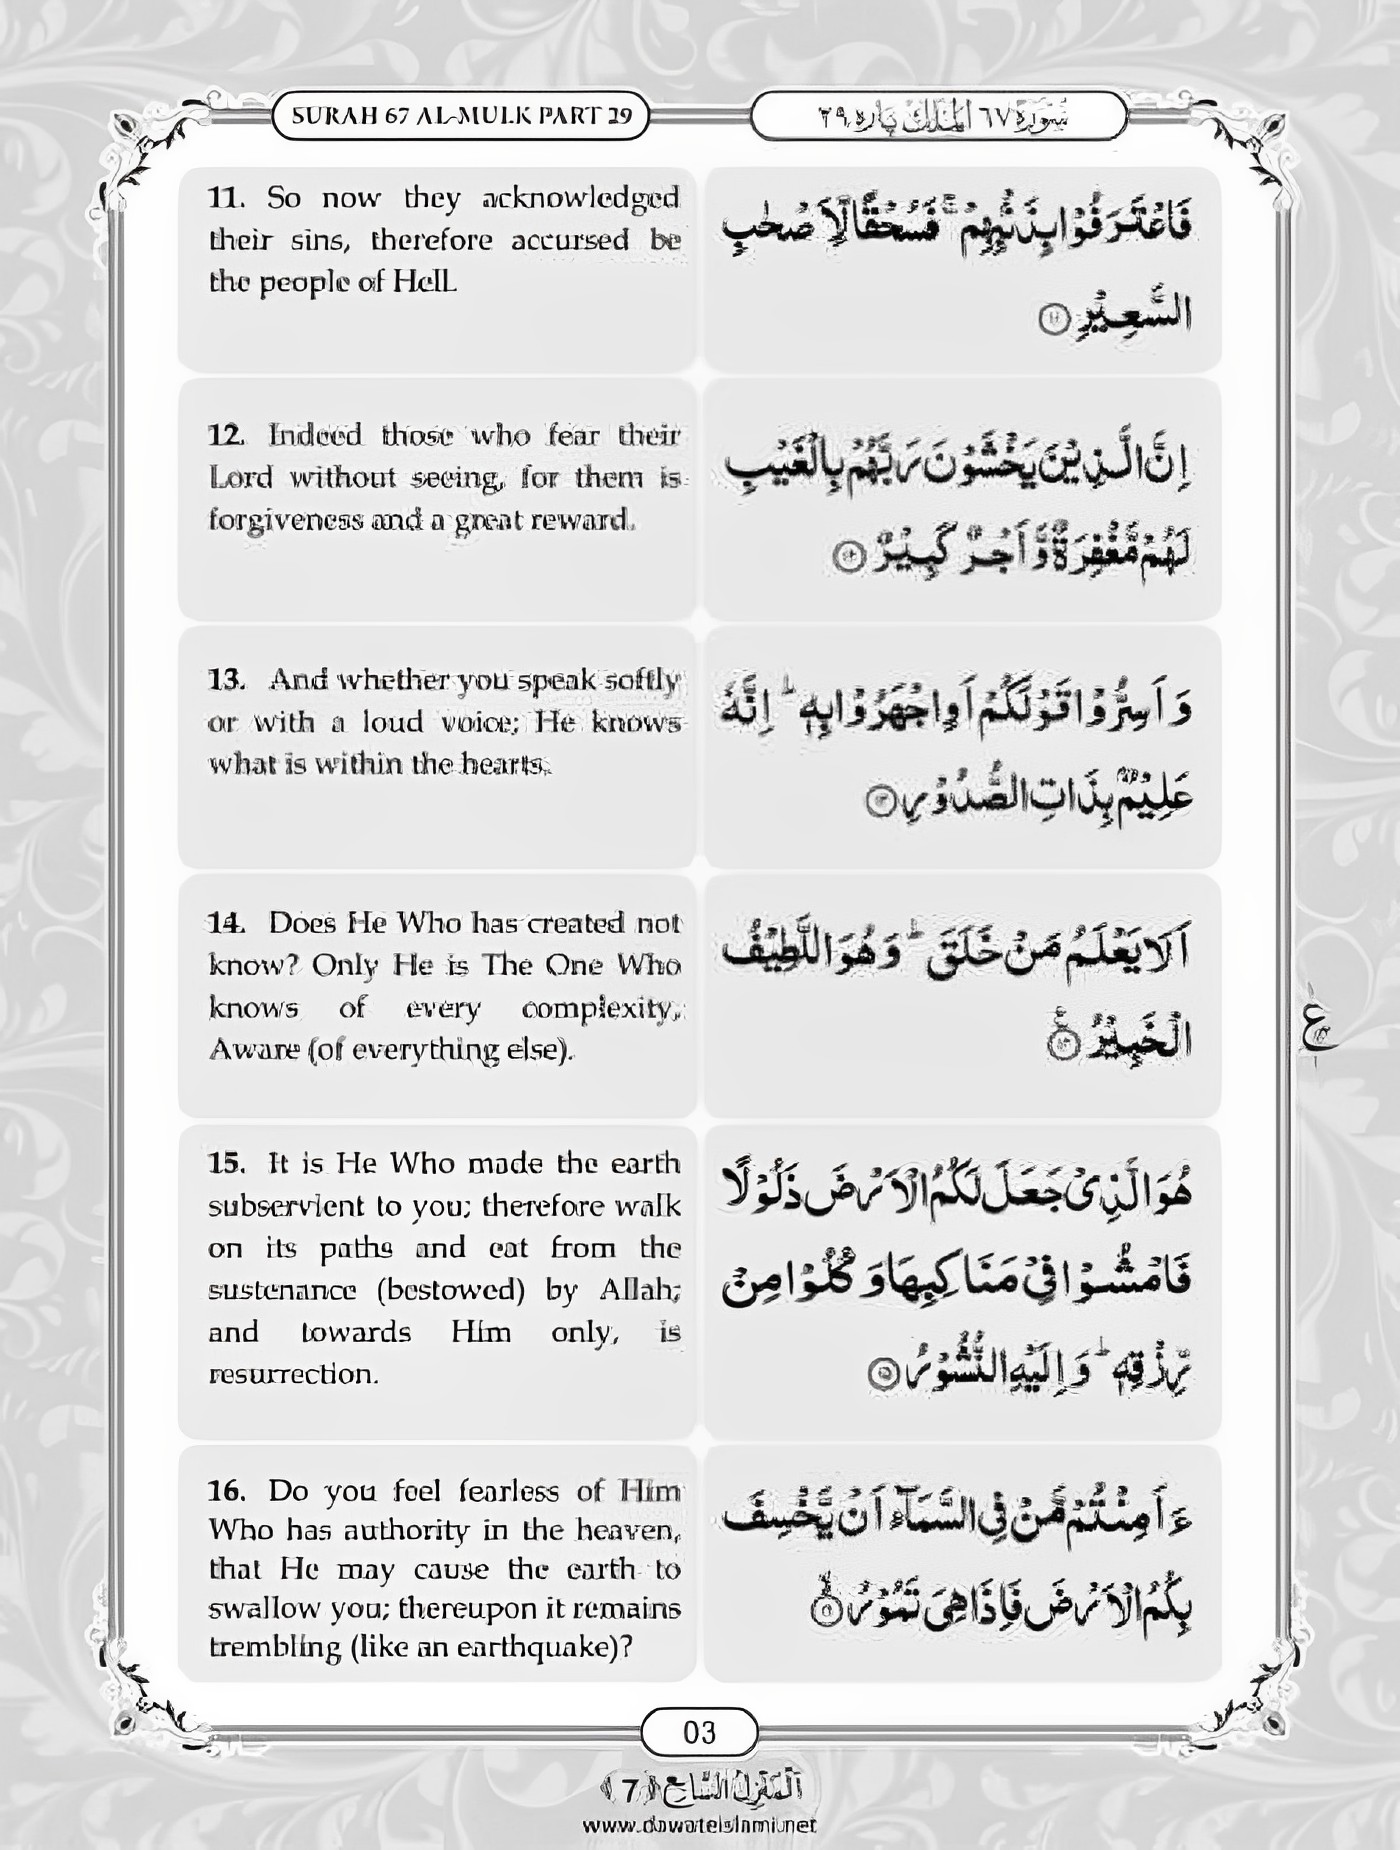 SURAH 67 AL-MULK PART 29
سُوْرَةُ ٦٧ اَلْمُلْك پاره ٢٩
11. So now they acknowledged
their sins, therefore accursed be
the people of Hell.
فَاعْتَرَفُوْا بِذَنْۢبِهِمْ ۚ فَسُحْقًا لِّاَصْحٰبِ
السَّعِیْرِ ۝۱۱
12. Indeed those who fear their
Lord without seeing, for them is
forgiveness and a great reward.
اِنَّ الَّذِیْنَ یَخْشَوْنَ رَبَّهُمْ بِالْغَیْبِ
لَهُمْ مَّغْفِرَةٌ وَّ اَجْرٌ كَبِیْرٌ ۝۱۲
13. And whether you speak softly
or with a loud voice; He knows
what is within the hearts.
وَ اَسِرُّوْا قَوْلَكُمْ اَوِ اجْهَرُوْا بِهٖ ؕ اِنَّهٗ
عَلِیْمٌۢ بِذَاتِ الصُّدُوْرِ ۝۱۳
14. Does He Who has created not
know? Only He is The One Who
knows of every complexity,
Aware (of everything else).
اَلَا یَعْلَمُ مَنْ خَلَقَ ؕ وَ هُوَ اللَّطِیْفُ
الْخَبِیْرُ ۝۱۴
ع
15. It is He Who made the earth
subservient to you; therefore walk
on its paths and eat from the
sustenance (bestowed) by Allah;
and towards Him only, is
resurrection.
هُوَ الَّذِیْ جَعَلَ لَكُمُ الْاَرْضَ ذَلُوْلًا
فَامْشُوْا فِیْ مَنَاكِبِهَا وَ كُلُوْا مِنْ
رِّزْقِهٖ ؕ وَ اِلَیْهِ النُّشُوْرُ ۝۱۵
16. Do you feel fearless of Him
Who has authority in the heaven,
that He may cause the earth to
swallow you; thereupon it remains
trembling (like an earthquake)?
ءَاَمِنْتُمْ مَّنْ فِی السَّمَآءِ اَنْ یَّخْسِفَ
بِكُمُ الْاَرْضَ فَاِذَا هِیَ تَمُوْرُ ۝۱۶
03
اَلْمَنْزِلُ السَّابِع ﴿7﴾
www.dawateislami.net